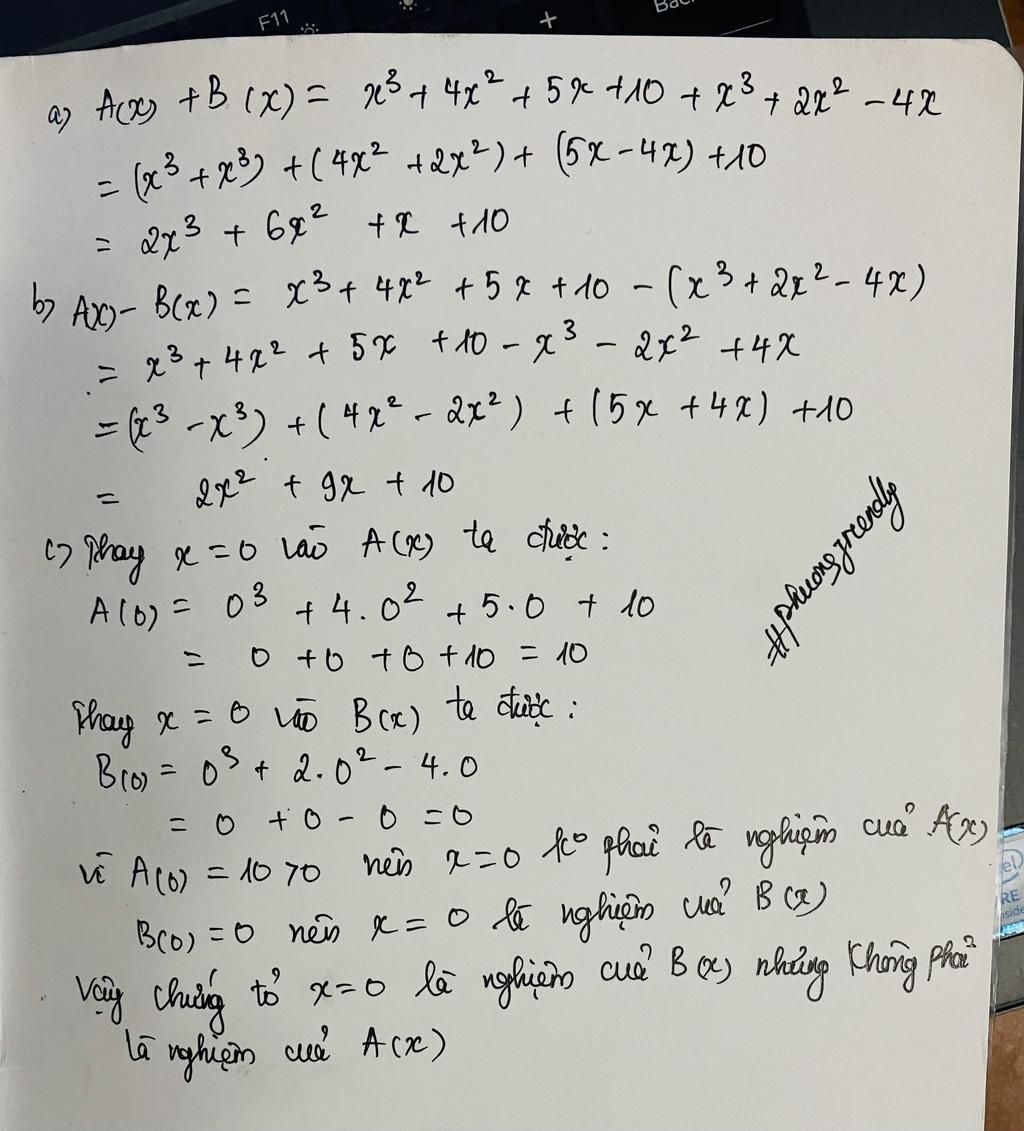 F11
+
Bac
a) A(x) + B(x) = x³ + 4x² + 5x + 10 + x³ + 2x² - 4x
= (x³ + x³) + (4x² + 2x²) + (5x - 4x) + 10
= 2x³ + 6x² + x + 10
b) A(x) - B(x) = x³ + 4x² + 5x + 10 - (x³ + 2x² - 4x)
= x³ + 4x² + 5x + 10 - x³ - 2x² + 4x
= (x³ - x³) + (4x² - 2x²) + (5x + 4x) + 10
= 2x² + 9x + 10
c) Thay x = 0 vào A(x) ta được :
A(0) = 0³ + 4.0² + 5.0 + 10
= 0 + 0 + 0 + 10 = 10
#phuongfriendly
Thay x = 0 vào B(x) ta được :
B(0) = 0³ + 2.0² - 4.0
= 0 + 0 - 0 = 0
vì A(0) = 10 > 0 nên x = 0 k° phải là nghiệm của A(x)
B(0) = 0 nên x = 0 là nghiệm của B(x)
Vậy chứng tỏ x = 0 là nghiệm của B(x) nhưng không phải
là nghiệm của A(x)
el
RE
nside